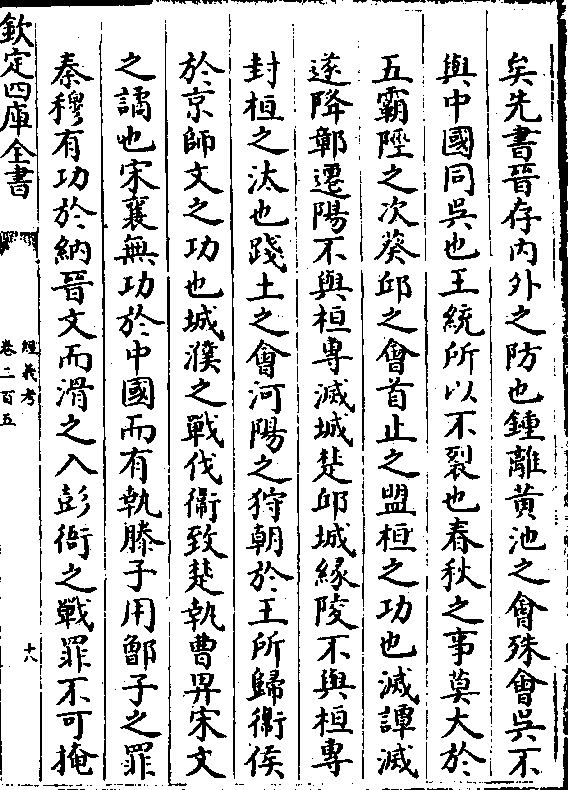 矣先書晉存内外之防也鍾離黄池之㑹殊㑹吳不
與中國同吳也王統所以不裂也春秋之事莫大於
五霸陘之次葵邱之㑹首止之盟桓之功也滅譚滅
遂降鄣遷陽不與桓專滅城楚邱城緣陵不與桓專
封桓之汰也踐土之㑹河陽之狩朝於王所歸衞侯
於京師文之功也城濮之戰伐衞致楚執曹畀宋文
之譎也宋襄無功於中國而有執滕子用鄫子之罪
秦穆有功於納晉文而滑之入彭衙之戰罪不可掩
欽定四庫全書
經義考
卷二百五
十八